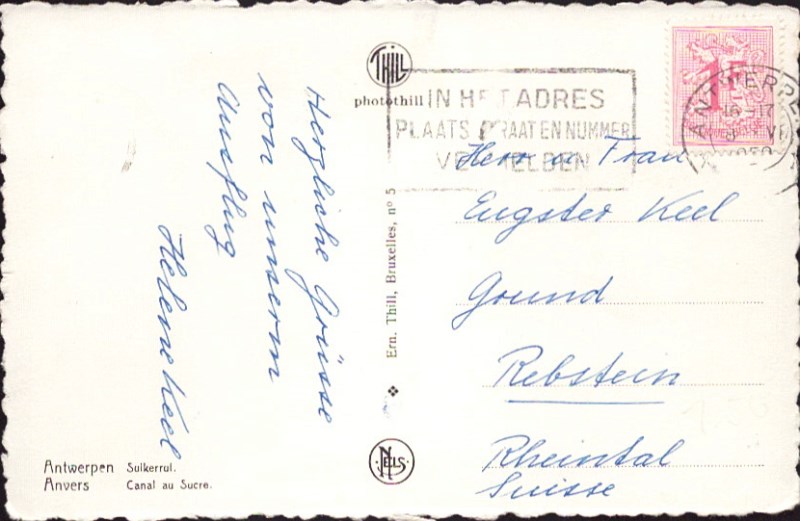 Herzliche Grüsse
von unserm
Ausflug
Helene Keel
THILL
photothill
IN HET ADRES
PLAATS STRAAT EN NUMMER
VERMELDEN
1F
ANTWERPEN
16-17
VI
Herr u. Frau
Eugster Keel
Grund
Rebstein
Rheintal
Suisse
Ern. Thill, Bruxelles, n° 5
NELS
Antwerpen Suikerrui.
Anvers Canal au Sucre.